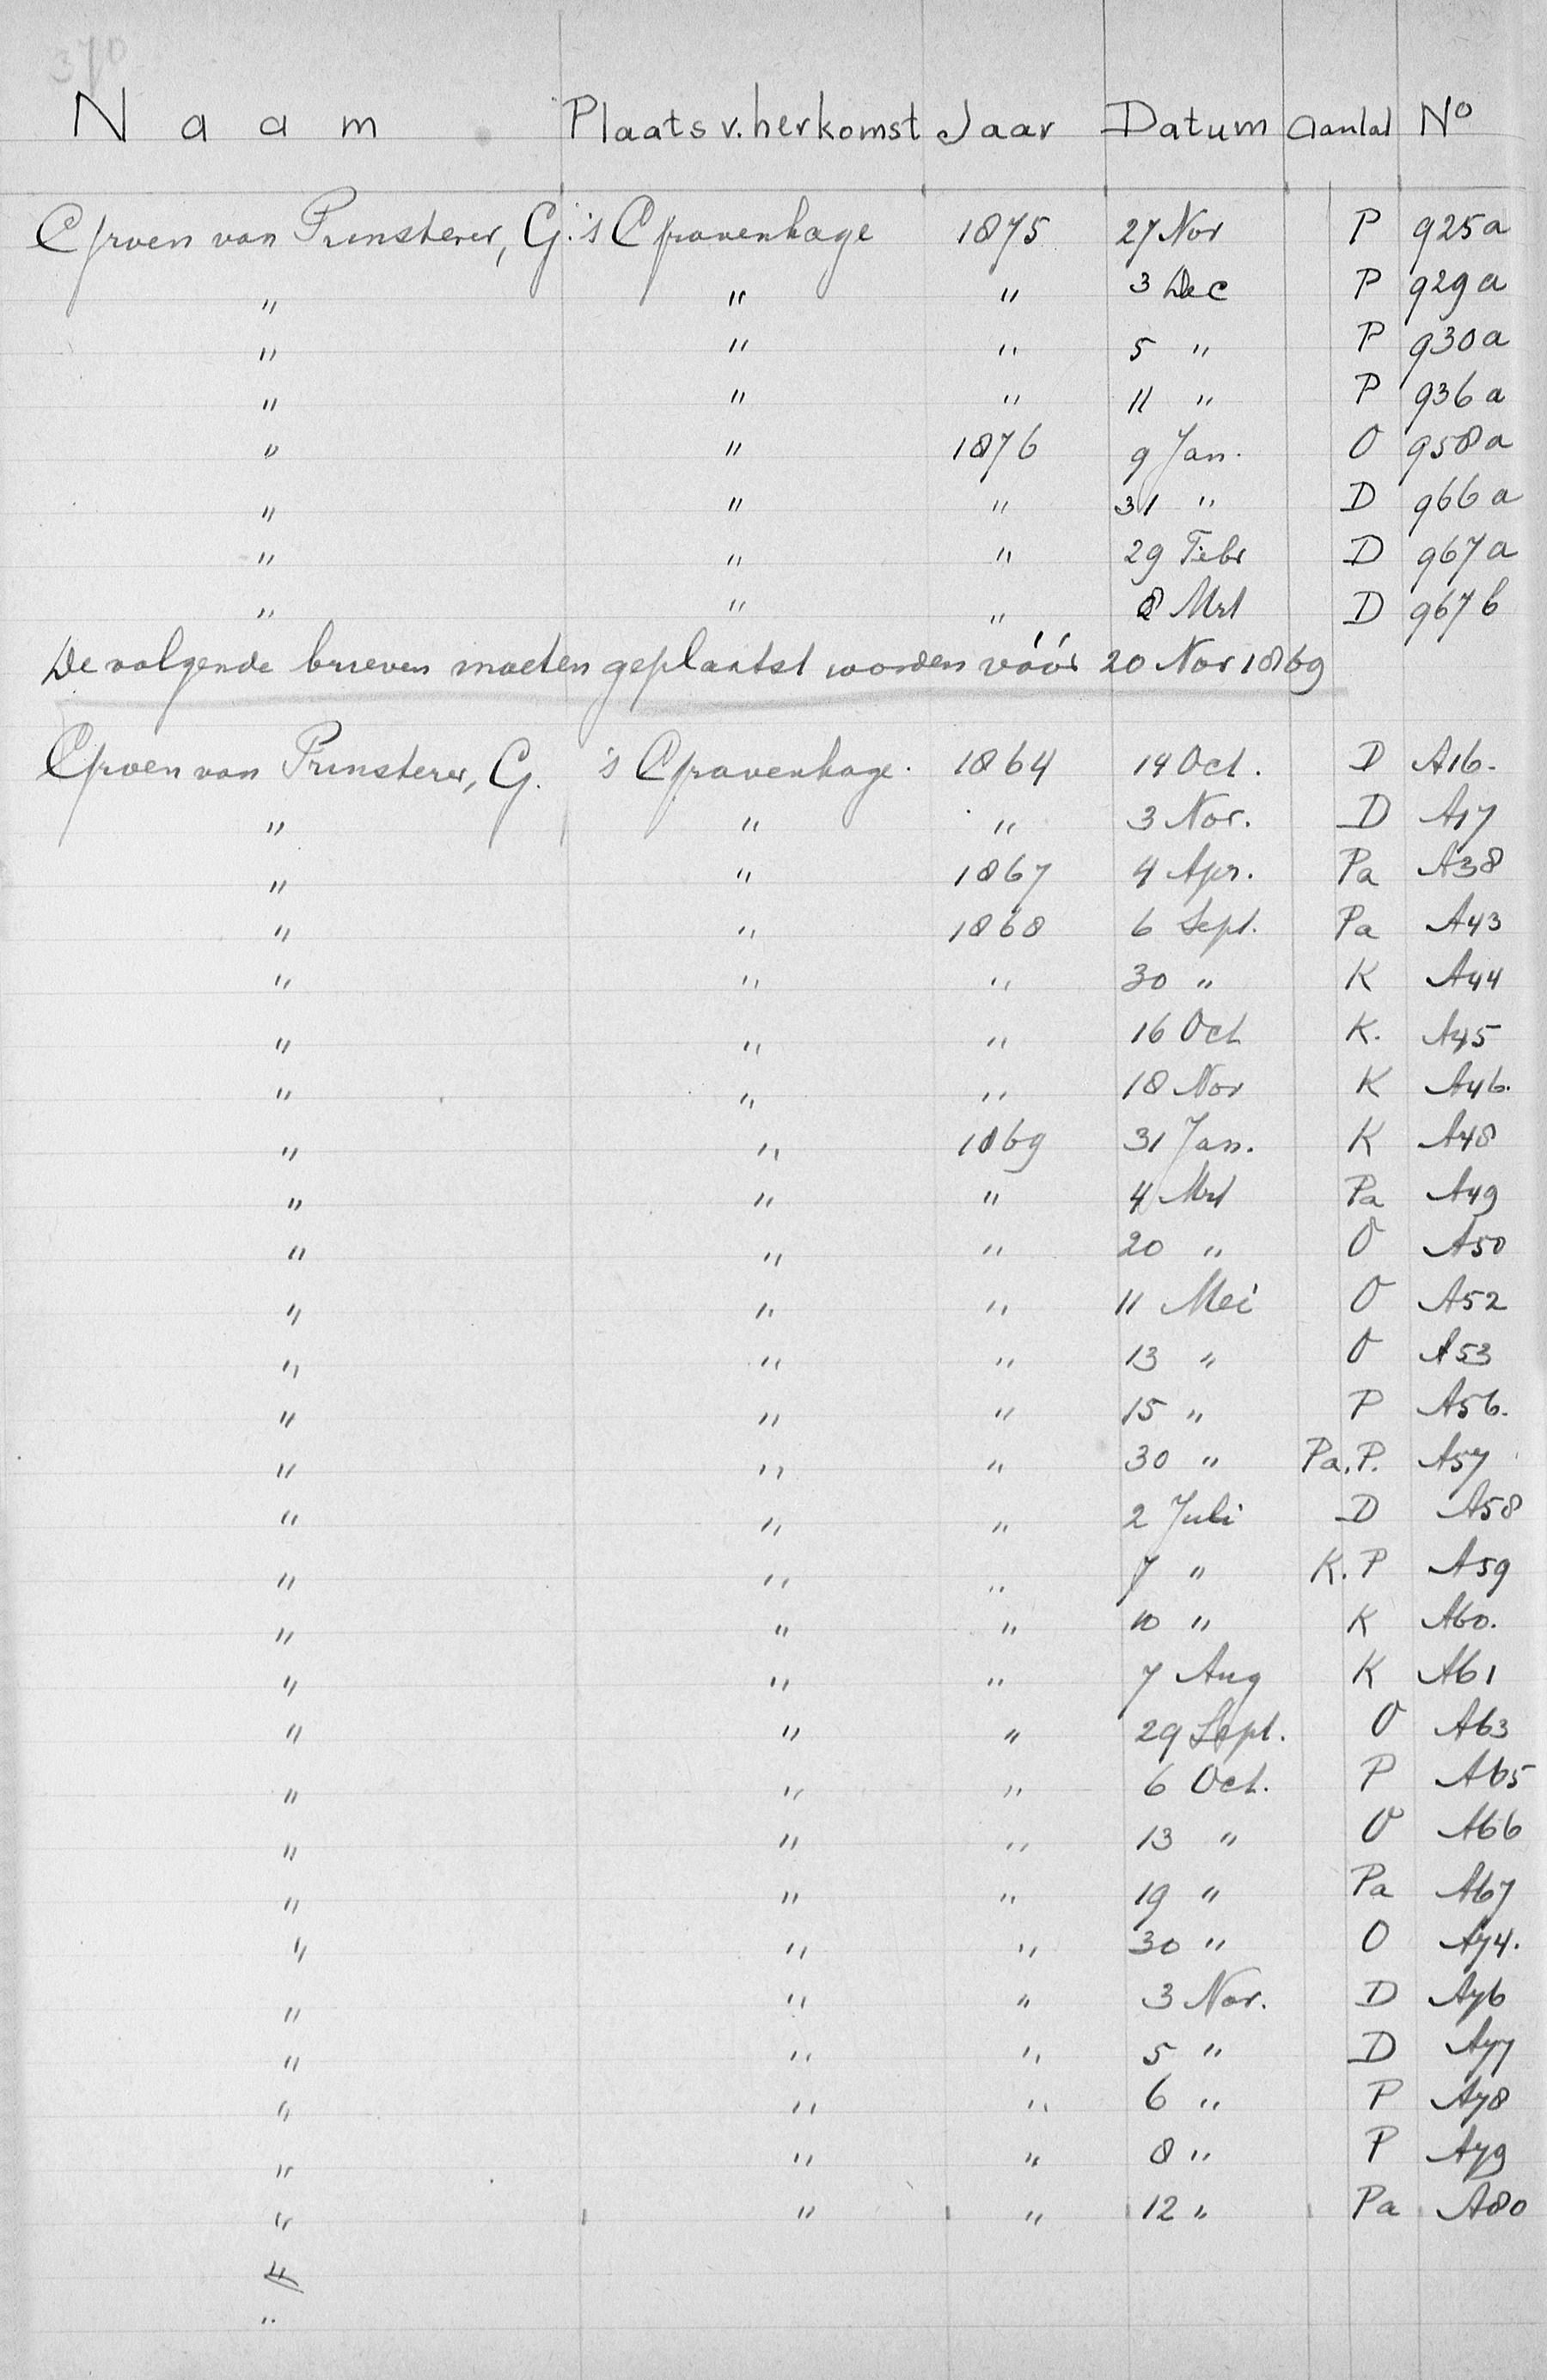 370
Naam Plaats v. herkomst Jaar Datum Aantal No
Groen van Prinsterer, G. 's Gravenhage 1875 27 Nov P 925a
" " " 3 Dec P 929a
" " " 5 " P 930a
" " " 11 " P 936a
" " 1876 9 Jan. O 958a
" " " 31 " D 966a
" " " 29 Febr D 967a
" " " 8 Mrt D 967b
De volgende brieven moeten geplaatst worden vóór 20 Nov 1869
Groen van Prinsterer, G. 's Gravenhage. 1864 19 Oct. D A16.
" " " 3 Nov. D A17
" " 1867 4 Apr. Pa A38
" " 1868 6 Sept. Pa A43
" " " 30 " K A44
" " " 16 Oct K. A45
" " " 18 Nov K A46.
" " 1869 31 Jan. K A48
" " " 4 Mrt Pa A49
" " " 20 " O A50
" " " 11 Mei O A52
" " " 13 " O A53
" " " 15 " P A56.
" " " 30 " Pa. P. A57
" " " 2 Juli D A58
" " " 7 " K. P A59
" " " 10 " K A60.
" " " 7 Aug K A61
" " " 29 Sept. O A63
" " " 6 Oct. P A65
" " " 13 " O A66
" " " 19 " Pa A67
" " " 30 " O A74.
" " " 3 Nov. D A76
" " " 5 " D A77
" " " 6 " P A78
" " " 8 " P A79
" " " 12 " Pa A80
"
"